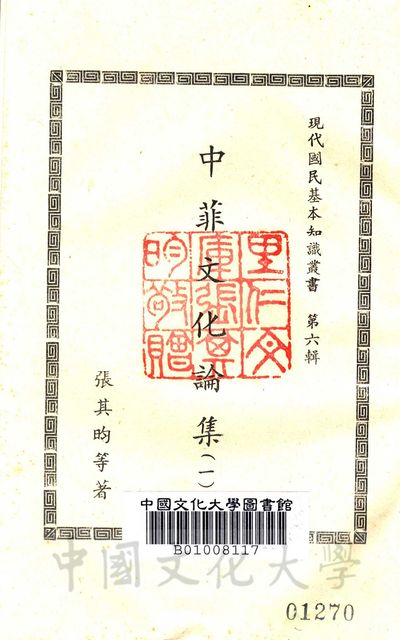 現代國民基本知識叢書　第六輯
中菲文化論集(一)
張其昀等著
里仁文
庫張其
昀敬贈
中國文化大學圖書館
B01008117
中國文化大學
01270